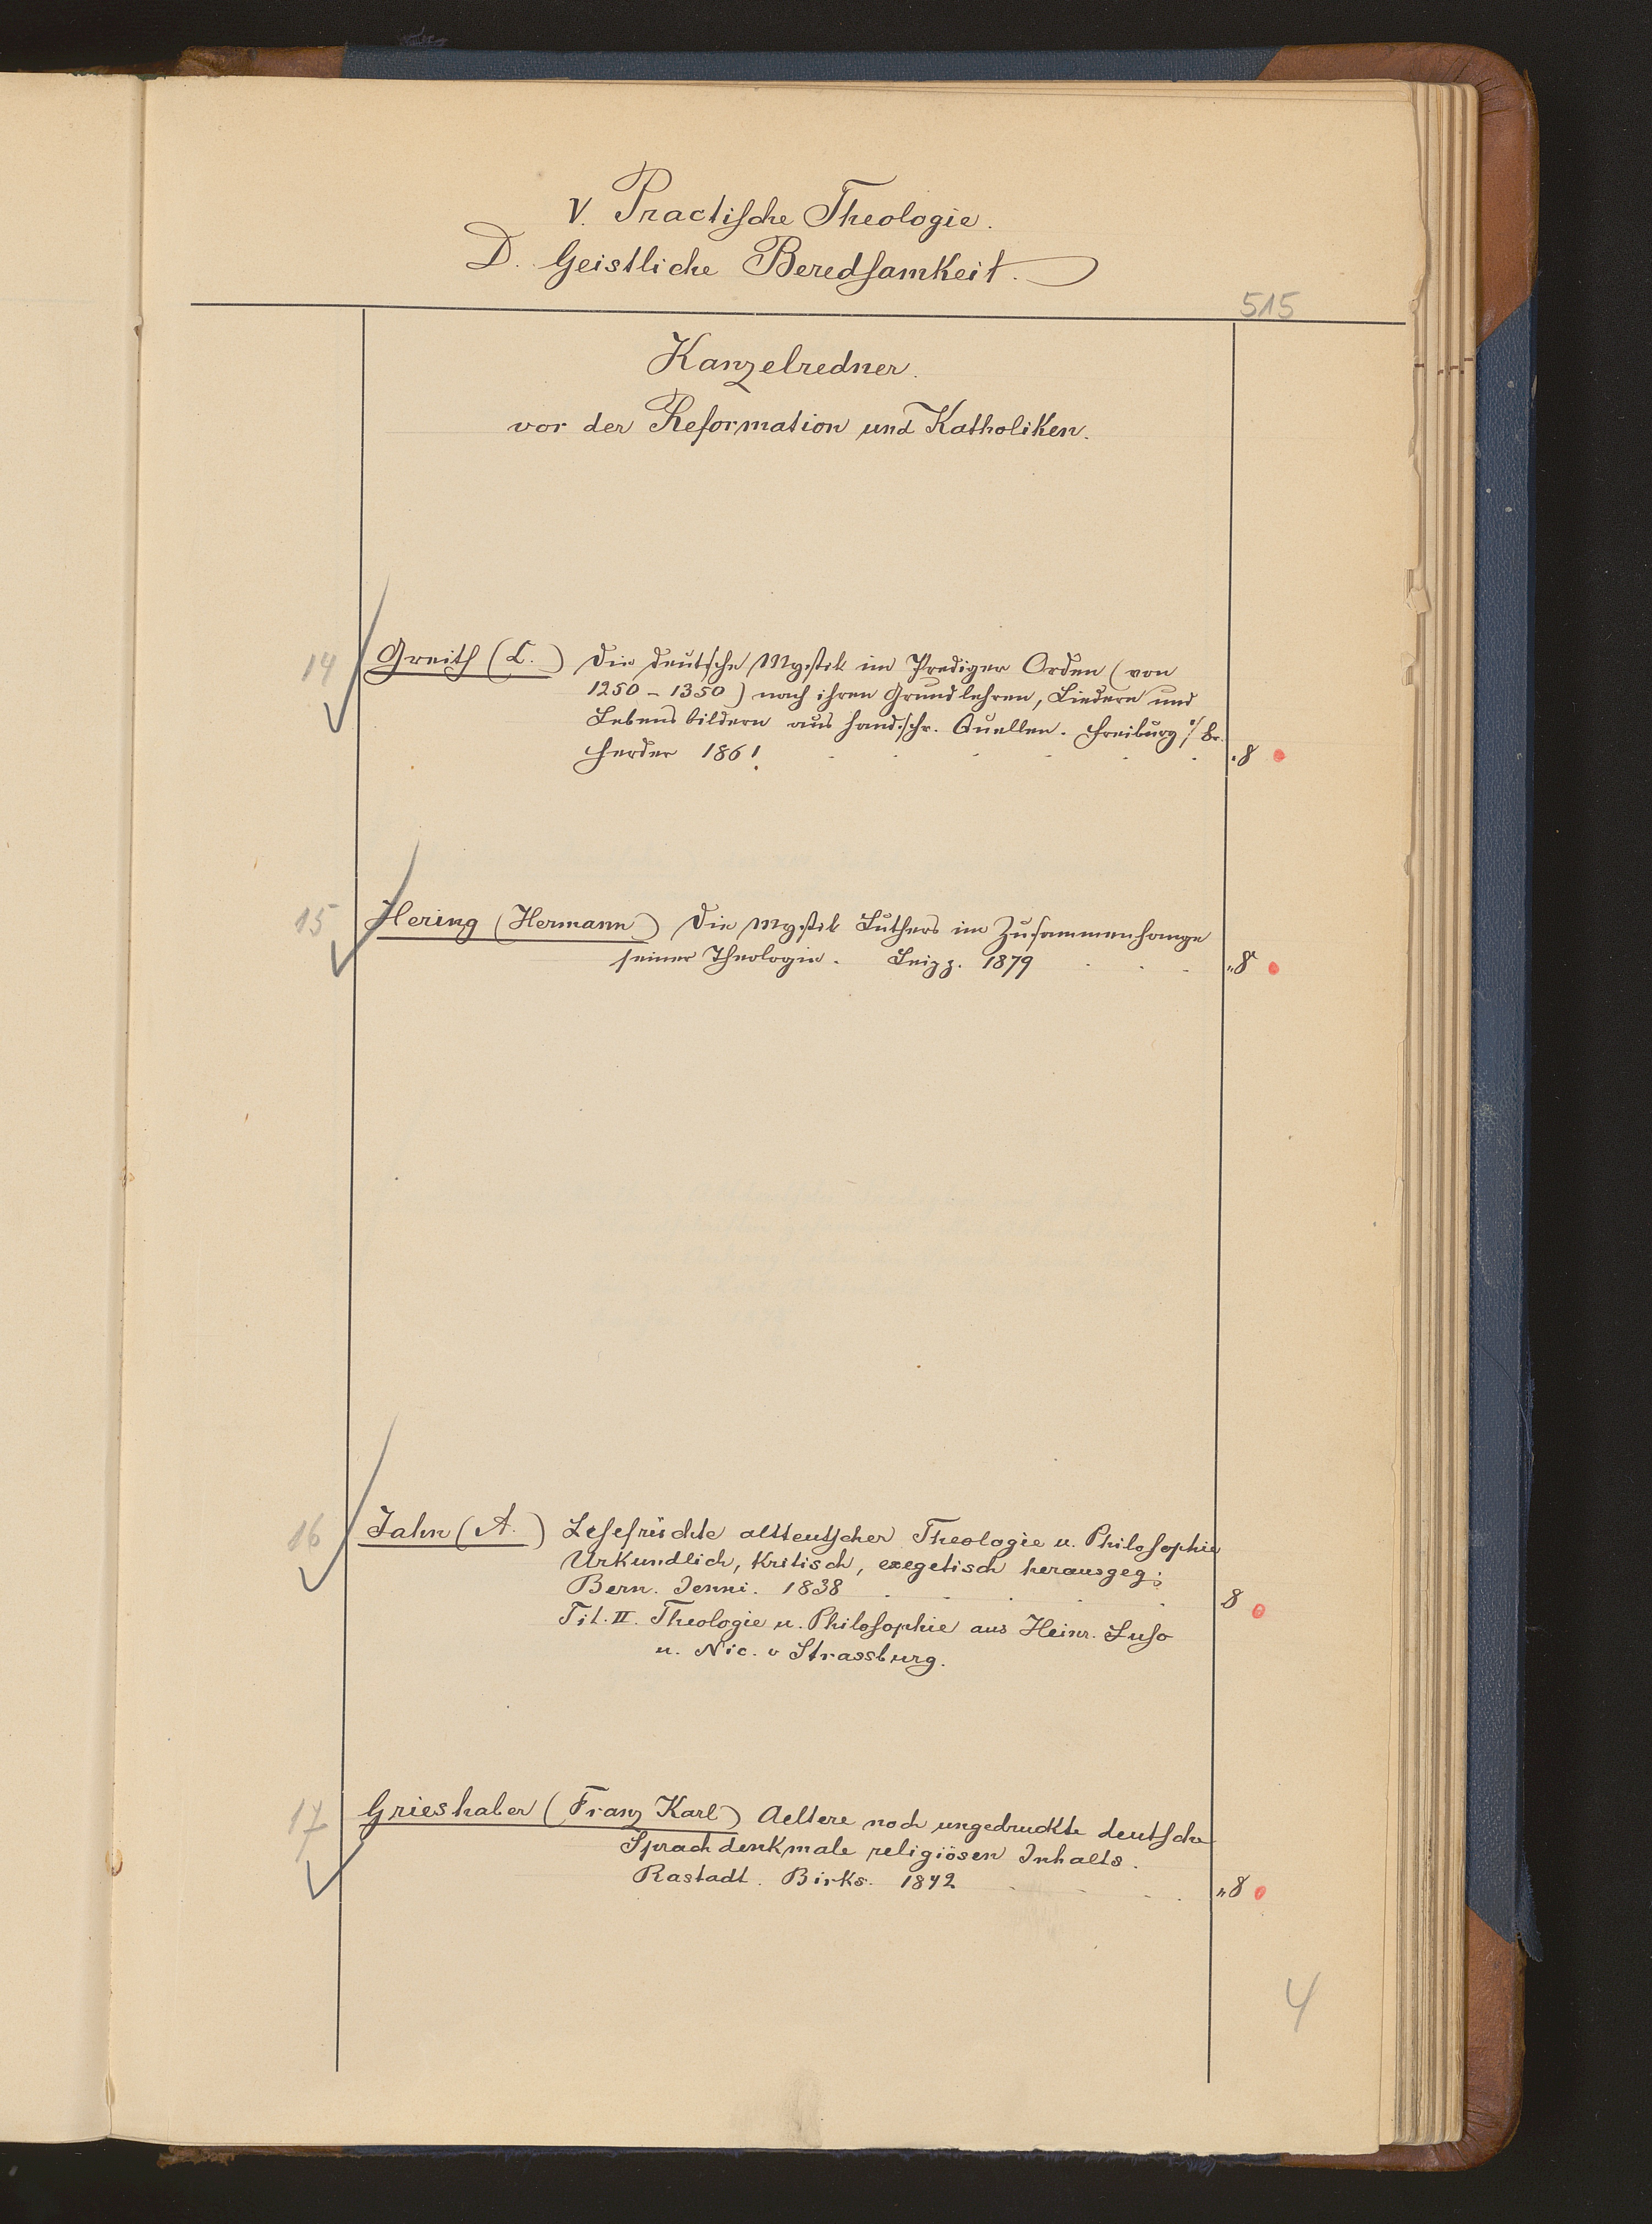 V. Practische Theologie.
D. Geistliche Beredsamkeit.
515
Kanzelredner.
vor der Reformation und Katholiken.
14 Greith (C.) Die deutsche Mystik im Prediger Orden (von
1250 - 1350) nach ihren Grundlehren, Liedern und
Lebensbildern aus handschr. Quellen. Freiburg i/Br.
Herder 1861. . . . . . . 8
15 Hering (Hermann) Die Mystik Luthers im Zusammenhange
seiner Theologie. Leipz. 1879 . . . "8
16 Jahn (A.) Lesefrüchte altteutscher Theologie u. Philosophie
Urkundlich, kritisch, exegetisch herausgeg:
Bern. Jenni. 1838 . . . . . 8
Tit. II. Theologie u. Philosophie aus Heinr. Suso
u. Nic. v Strassburg.
17 Grieshaber (Franz Karl) Aeltere noch ungedruckte deutsche
Sprachdenkmale religiösen Inhalts.
Rastadt. Birks. 1842 . . . . "8
4